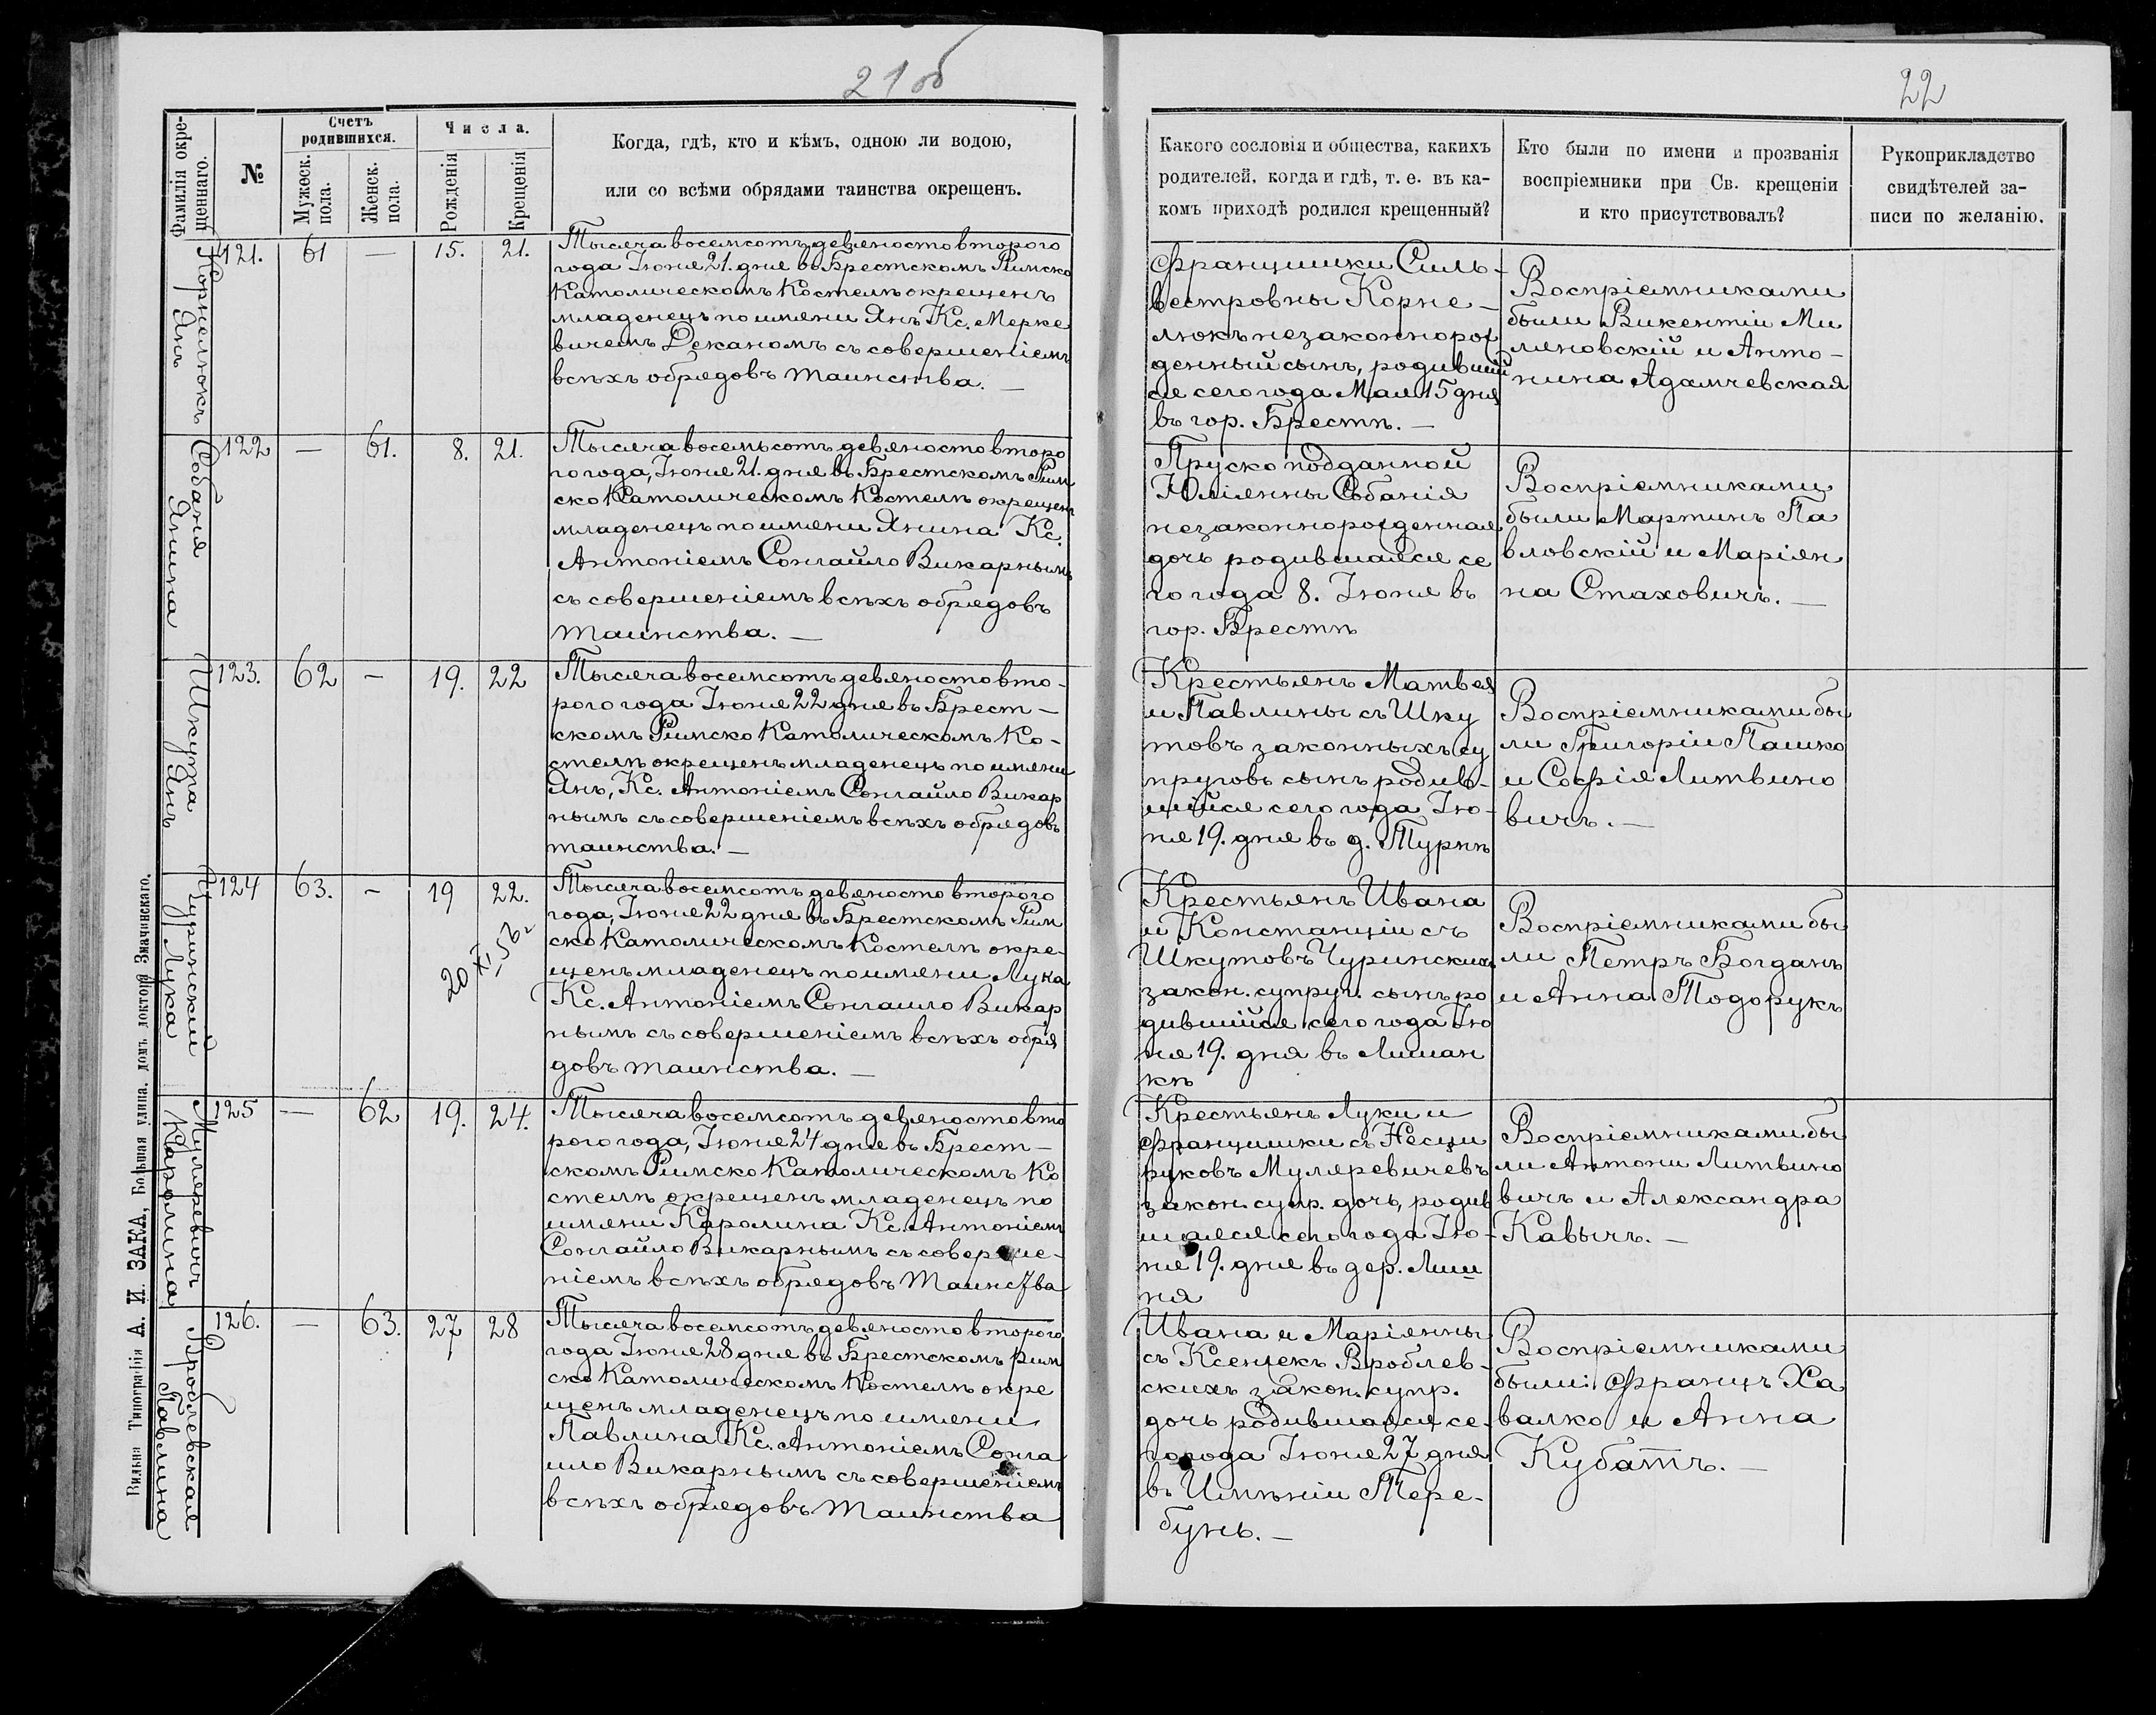 21 об
22
Фамилія окре-
щеннаго.
№
Счетъ
родившихся.
Мужеск.
пола.
Женск.
пола.
Числа.
Рожденія
Крещенія
Когда, гдѣ, кто и кѣмъ, одною ли водою,
или со всѣми обрядами таинства окрещенъ.
Какого сословія и общества, какихъ
родителей, когда и гдѣ, т. е. въ ка-
комъ приходѣ родился крещенный?
Кто были по имени и прозванія
воспріемники при Св. крещеніи
и кто присутствовалъ?
Рукоприкладство
свидѣтелей за-
писи по желанію.
Корнелюкъ
Янъ
121.
61
—
15.
21.
Тысяча восемсотъ девяносто второго
года Іюня 21. дня въ Брестскомъ Римско
Католическомъ Костелѣ окрещенъ
младенецъ по имени Янъ Кс. Мерке
вичемъ Деканомъ съ совершеніемъ
всѣхъ обрядовъ таинства. —
Францишки Силь-
вестровны Корне-
люкъ незаконнорож
денный сынъ, родивший
ся сего года Мая 15 дня
въ гор. Брестѣ. —
Воспріемниками
были Викентіи Ми
ляновскій и Анто-
нина Адамчевская
Собаня
Янина
122
—
61.
8.
21.
Тысяча восемьсотъ девяносто второ
го года, Іюня 21. дня въ Брестскомъ Рим
ско Католическомъ Костелѣ окрещенъ
младенецъ по имени Янина Кс.
Антоніемъ Сонгайло Викарнымъ
съ совершеніемъ всѣхъ обрядовъ
таинства. —
Пруско подданной
Юліянны Собанія
незаконнорожденная
дочь родившаяся се
го года 8. Іюня въ
гор. Брестѣ
Воспріемниками
были Мартинъ Па
вловскій и Маріян
на Стаховичъ. —
Шкутра
Янъ
123.
62
—
19.
22
Тысяча восемсотъ девяносто вто-
рого года Іюня 22 дня въ Брест-
скомъ Римско Католическомъ Ко-
стелѣ окрещенъ младенецъ по имени
Янъ, Кс. Антоніемъ Сонгайло Викар
нымъ съ совершеніемъ всѣхъ обрядовъ
таинства. —
Крестьянъ Матвея
и Павлины съ Шку
товъ законныхъ су
пруговъ сынъ родив-
шійся сего года Ію-
ня 19. дня въ д. Турнѣ
Воспріемниками бы
ли Григоріи Пашко
и Софія Литвино
вичъ. —
Чуринскій
Лука
124
63.
—
19
22.
20 XI 56 г
Тысяча восемсотъ девяносто второго
года, Іюня 22 дня въ Брестскомъ Рим
ско Католическомъ Костелѣ окре-
щенъ младенецъ по имени Лука
Кс. Антоніемъ Сонгаило Викар
нымъ съ совершеніемъ всѣхъ обря
довъ таинства. —
Крестьянъ Ивана
и Констанціи съ
Шкутовъ Чуринскихъ
закон. супруг. сынъ ро
дившійся сего года Ію
ня 19. дня въ Лишан
кѣ
Воспріемниками бы
ли Петръ Богданъ
и Анна Тодорукъ
Муляревичъ
Каролина
125
—
62
19.
24.
Тысяча восемсотъ девяносто вто
рого года, Іюня 24 дня въ Брест-
скомъ Римско Католическомъ Ко
стелѣ окрещенъ младенецъ по
имени Каролина Кс. Антоніемъ
Сонгайло Викарнымъ съ соверше-
ніемъ всѣхъ обрядовъ Таинства
Крестьянъ Луки и
Францишки съ Несци
руковъ Муляревичевъ
закон. супр. дочь, родив
шаяся сего года Ію-
ня 19. дня въ дер. Лиш
ня
Воспріемниками бы
ли Антони Литвино
вичъ и Александра
Кавычъ. —
Вроблевская
Павлина
126.
—
63.
27
28
Тысяча восемсотъ девяносто второго
года Іюня 28 дня въ Брестскомъ Рим
ско Католическомъ Костелѣ окре
щенъ младенецъ по имени
Павлина Кс. Антоніемъ Сонга
ило Викарнымъ съ совершеніемъ
всѣхъ обрядовъ Таинства
Ивана и Маріянны
съ Ксенжекъ Вроблев-
скихъ закон. супр.
дочь родившаяся се-
го года Іюня 27 дня
въ Имѣніи Тере-
бунь. —
Воспріемниками
были: Францъ Ха
валко и Анна
Кубатъ. —
Вильна Типографія А. И. ЗАКА, Большая улица, домъ доктора Змачинскаго.